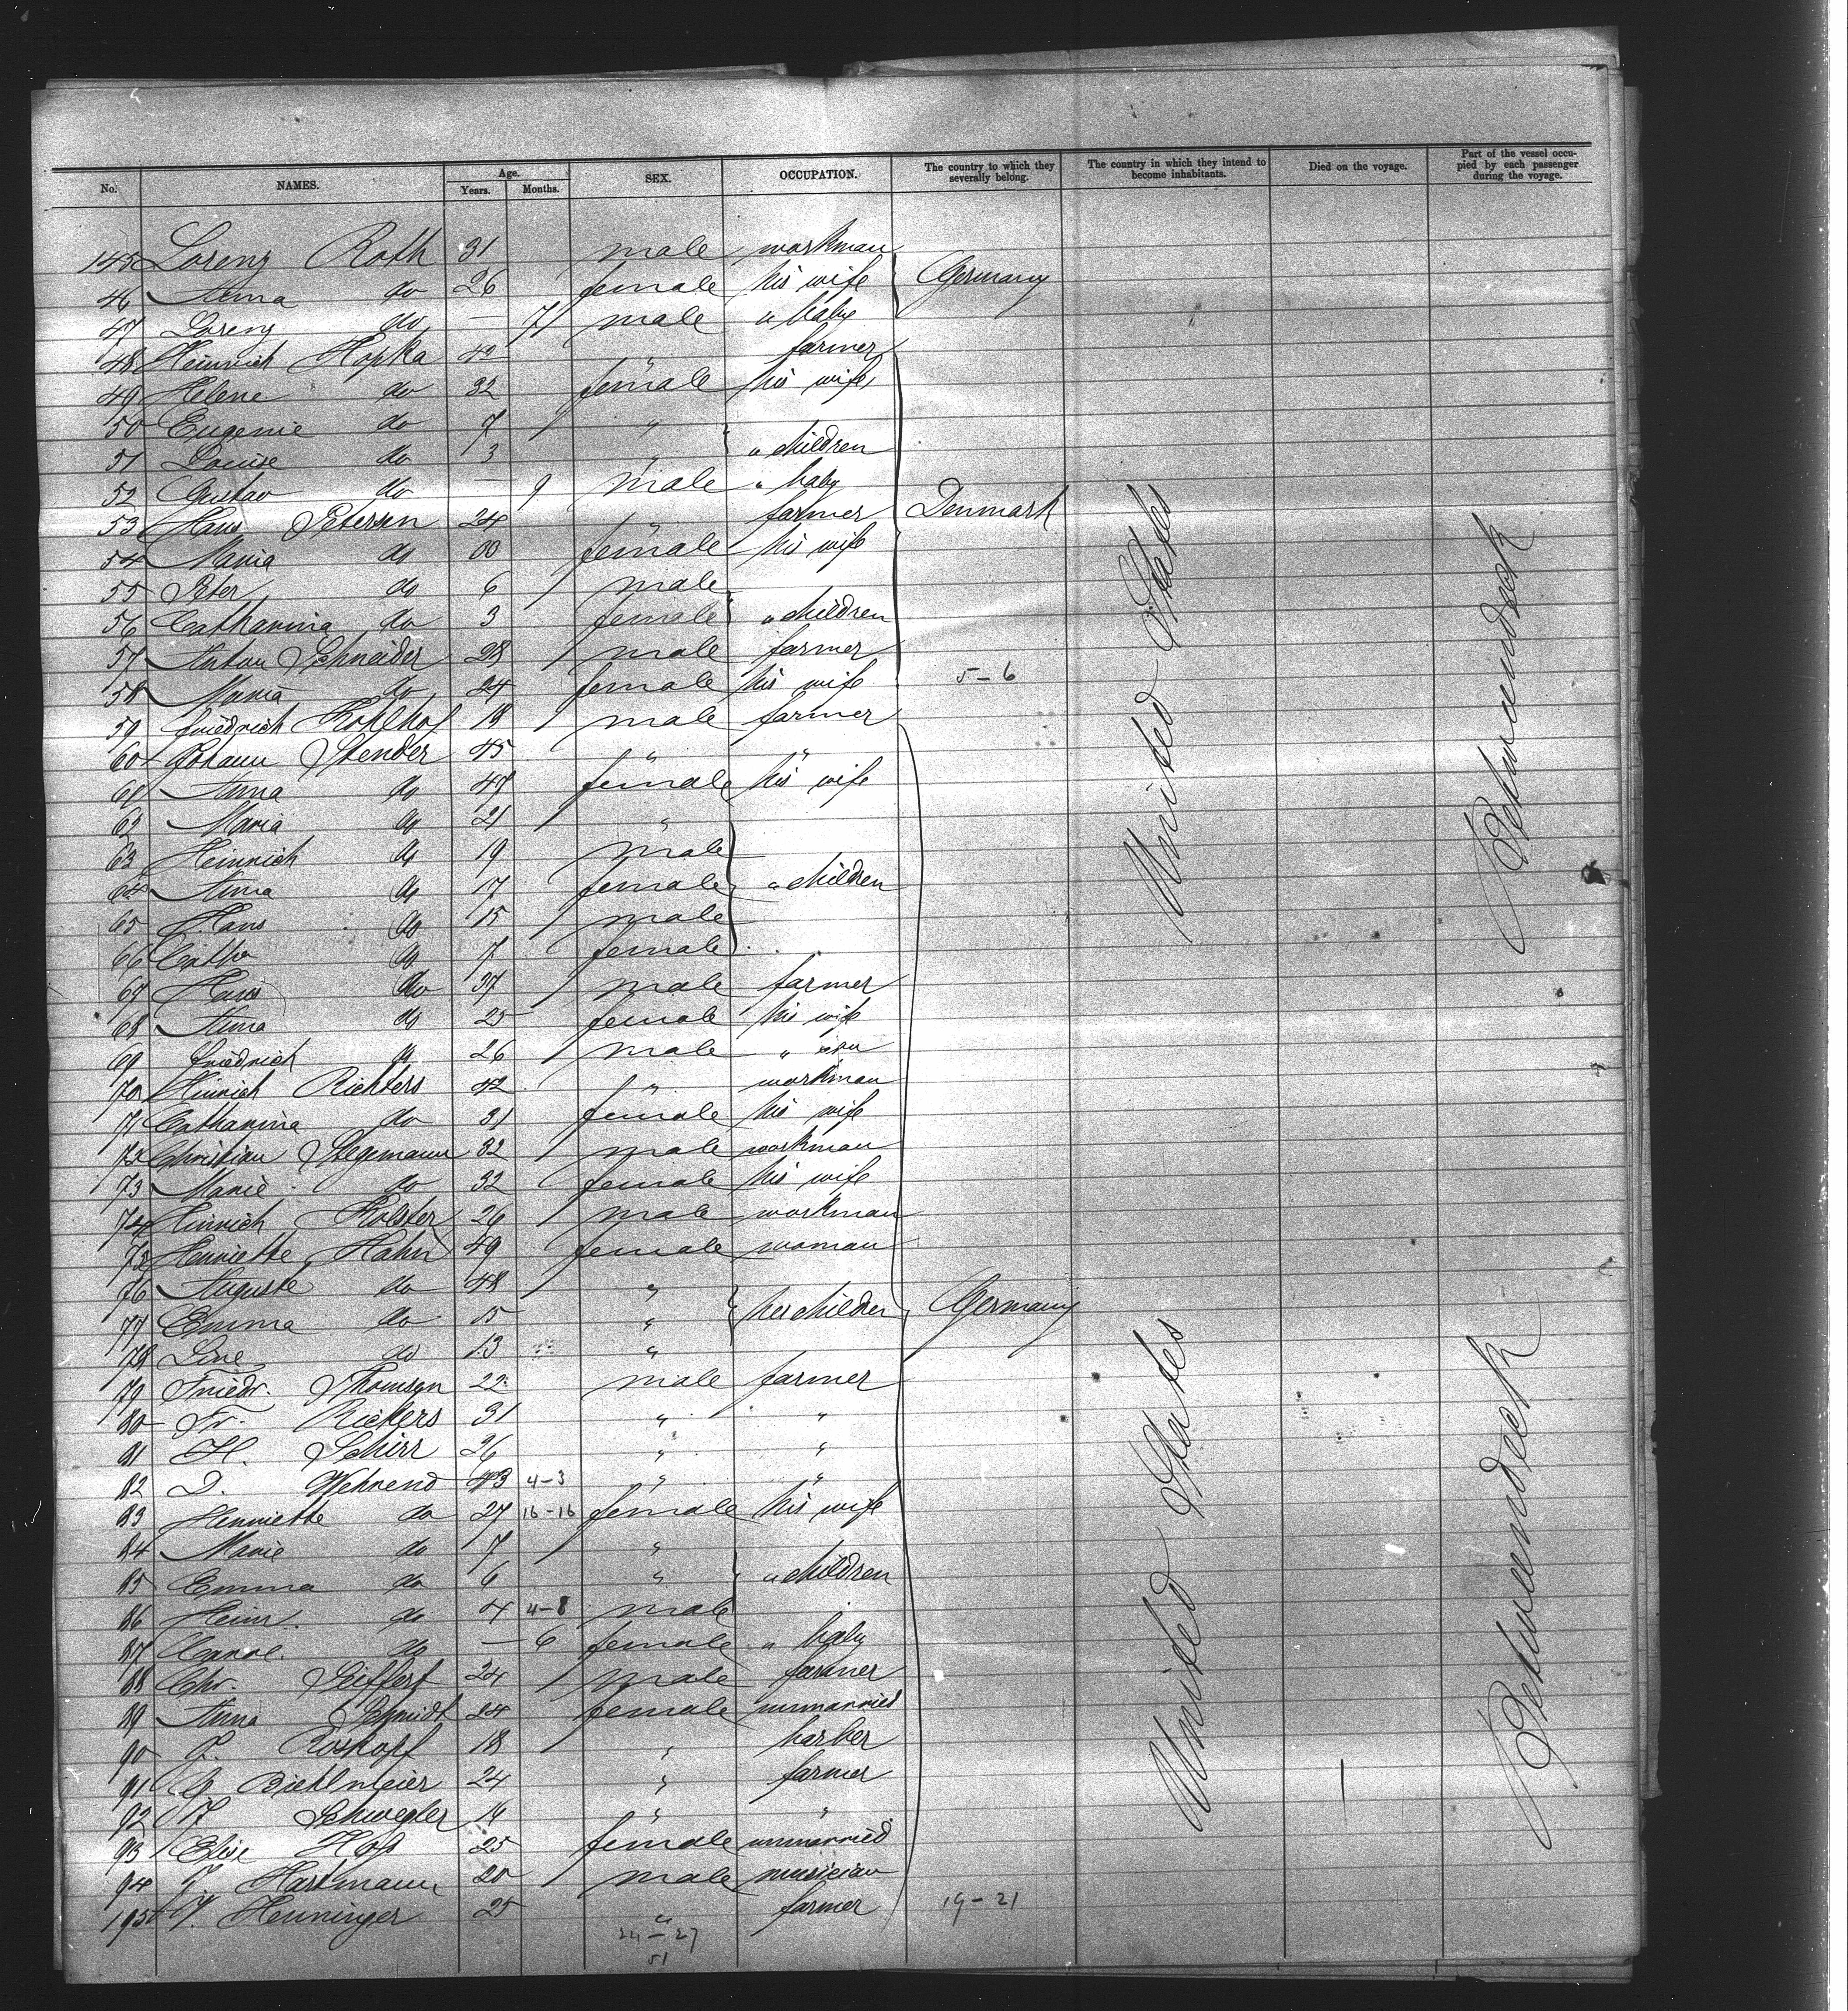 No. NAMES. Age. Years. Months. SEX. OCCUPATION. The country to which they severally belong. The country in which they intend to become inhabitants. Died on the voyage. Part of the vessel occupied by each passenger during the voyage.
145 Lorenz Roth 31 male workman
46 Anna do 26 female his wife Germany
47 Lorenz do — 7 male " baby
48 Heinrich Hopka 42 " farmer
49 Helene do 32 female his wife
50 Eugenie do 7 "
51 Louise do 3 " " children
52 Gustav do — 9 male " baby
53 Hans Petersen 24 " farmer Denmark
54 Maria do 00 female his wife
55 Peter do 6 male
56 Catharina do 3 female " children
57 Anton Schneider 28 male farmer
58 Maria do 24 female his wife 5-6
59 Friedrich Kohlhof 18 male farmer
60 Johann Stender 45 " "
61 Anna do 47 female his wife
62 Maria do 21 "
63 Heinrich do 19 male
64 Anna do 17 female " children
65 Hans do 15 male
66 Cathr do 7 female
67 Hans do 37 male farmer
68 Anna do 25 female his wife
69 Friedrich do 26 male " son
70 Hinrich Richters 42 " workman
71 Catharina do 31 female his wife
72 Christian Stegemann 32 male workman
73 Marie do 32 female his wife
74 Hinrich Holster 26 male workman
75 Henriette Hahn 49 female woman
76 Auguste do 48 "
77 Emma do 15 " her children Germany
78 Line do 13 "
79 Friedr. Thomsen 22 male farmer
80 Fr. Rickers 31 " "
81 H. Schirr 26 " "
82 D. Wehrend 43 4-3 " "
83 Henriette do 27 16-16 female his wife
84 Marie do 7 "
85 Emma do 6 " " children
86 Heinr. do 4 4-8 male
87 do — 6 female " baby
88 Chr. Seiffert 24 male farmer
89 Anna Schmidt 24 female unmarried
90 Roskopf 18 " barber
91 G Biehlmeier 24 " farmer
92 F Schwegler 16 " "
93 Elise Hops 25 female unmarried
94 F Hartmann 20 male musician
195 F. Henninger 25 " farmer 19-21
24-27
51
United States
Zwischendeck
United States
Zwischendeck